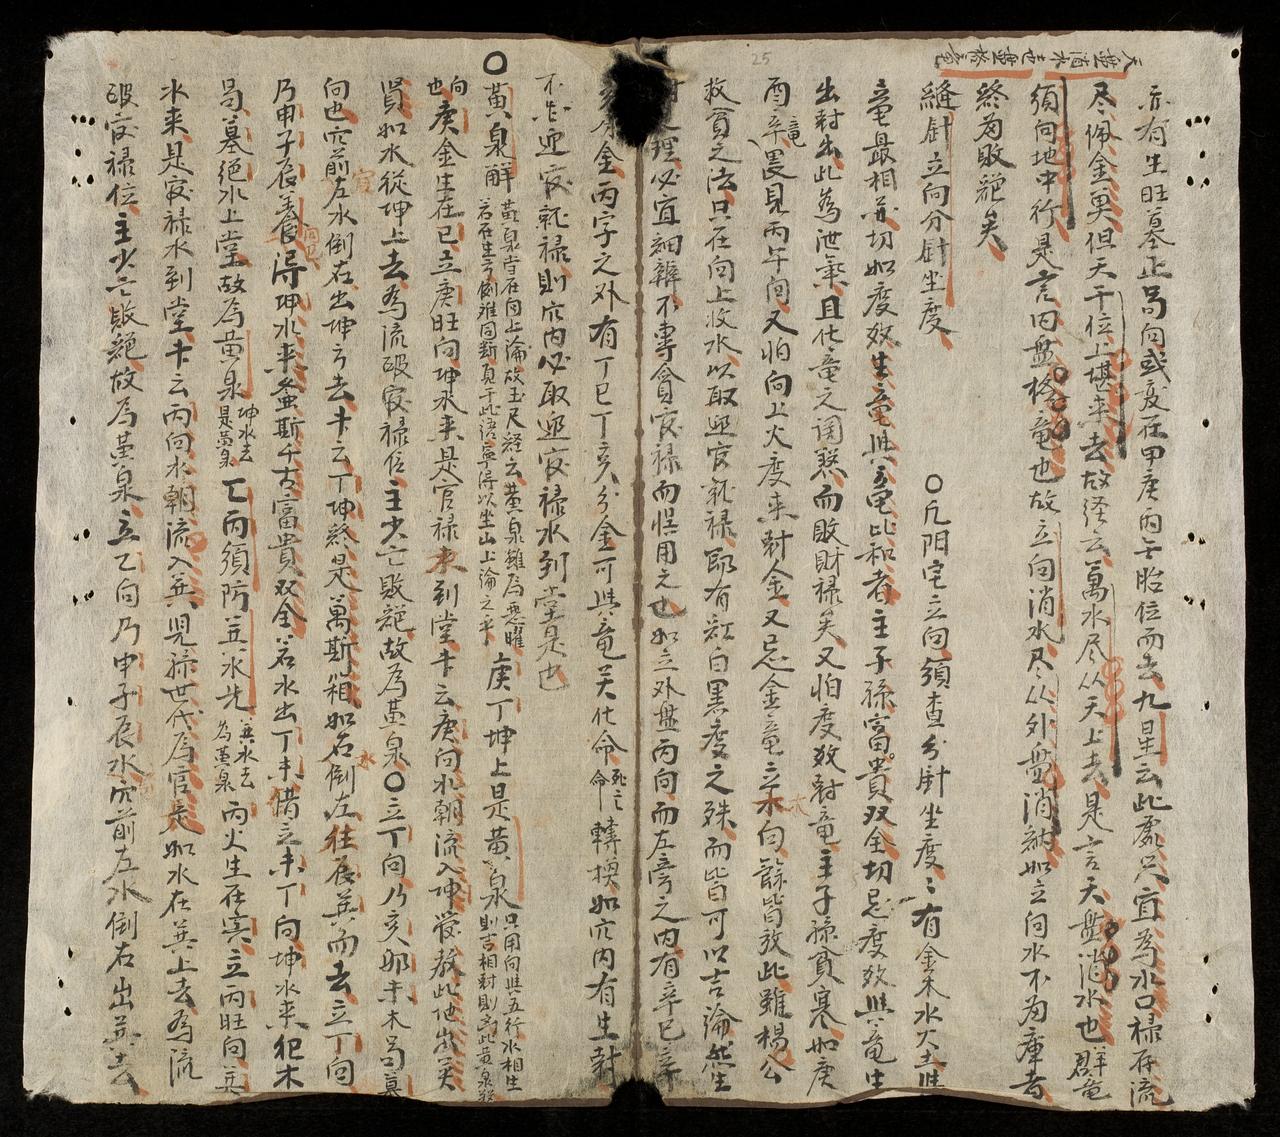 天盤消水地盤格竜
亦有生旺墓正局向或度在甲庚丙壬胎位而去九星云此處只宜為水口禄存流
尽佩金魚但天干位上堪来去故経云萬水尽从天上去是言天盤消水也群竜
須向地中行是言内盤格竜也故立向消水尽从外盤消納如立向水不為庫者
終為敗絶矣
縫針立向分針坐度
○凡阳宅立向須查分針坐度〻有金木水火土
竜最相亦切如度效生竜與竜比和者主子孫富貴双全切忌度效與竜生
出尅出此為泄氣且化竜之洩然而敗財禄矣又怕度效尅竜主子孫貧寒如庚
酉辛竜畏見丙午向又怕向上火度来尅金又忌金竜立向餘皆放此雖楊公
救貧之法只在向上收水以取迎官就禄即有紅白黑度之殊而皆可以吉論然生
尅之理必宜細辨不專貪官禄而悮用之也如立外盤丙向而左旁之内有辛巳辛
金丙字之外有丁巳丁亥分金可與竜关化命死亡命轉換如穴内有生尅
不出迎官就禄則穴内必取迎官禄水到堂是也
○黄泉解 黄泉皆在向上論故玉尺経云黄泉雖為悪曜若在生方例难同断頁于此語寧得以坐山上論之乎 庚丁坤上是黄泉 只用向與五行水相生則吉相尅則凶此黄泉
向也庚金生在巳立庚旺向坤水来是官禄来到堂书云庚向水朝流入坤管教此地出英
賢如水從坤上去為流破官禄位主少亡敗絶故為黄泉○立丁向乃亥卯未木局墓
向也穴前左水倒右出坤方去书云丁坤終是萬斯箱如右水倒左往辰巽而去立丁向
乃申子辰養向得坤水来螽斯千古富貴双全若水出丁未借立未丁向坤水来犯木
局墓絶水上堂故為黄泉 坤水去是黄泉 乙丙須防巽水先 巽水去為黄泉 丙火生在寅立丙旺向巽
水来是官禄水到堂书云丙向水朝流入巽児孫世代為官是如水在巽上去為流
破官禄位主少亡敗絶故為黄泉立乙向乃申子辰水穴前左水倒右出巽去